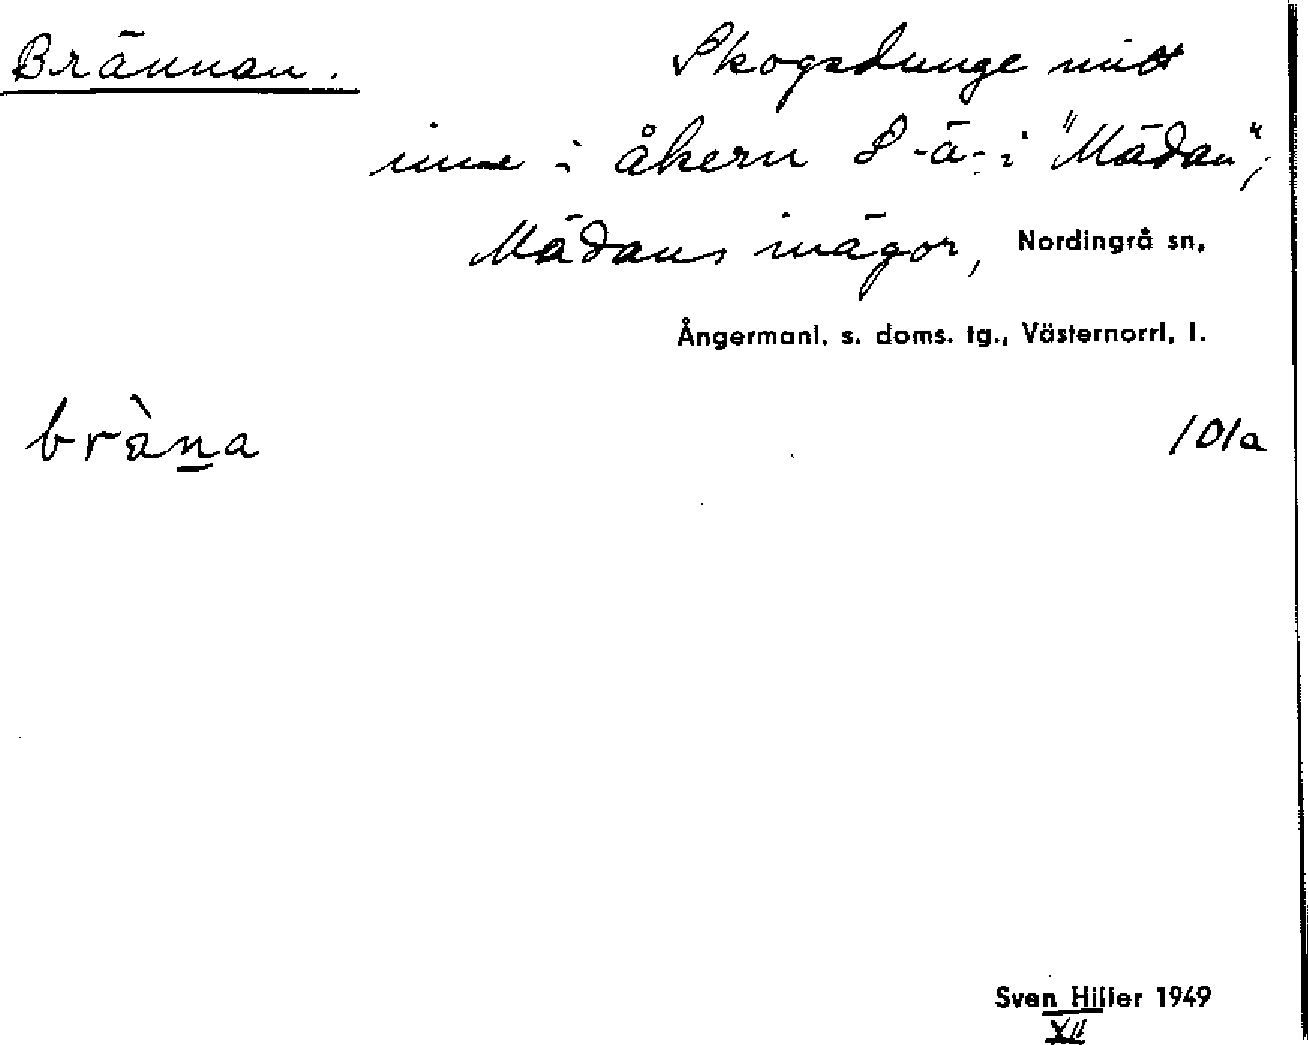 Brännan. Skogsdunge mitt
inne i åkern S-ä- i "Mädan",
Mädans inägor, Nordingrå sn,
Ångermanl. s. doms. tg., Västernorrl. l.
bràna 101a
Sven Hiller 1949
XII